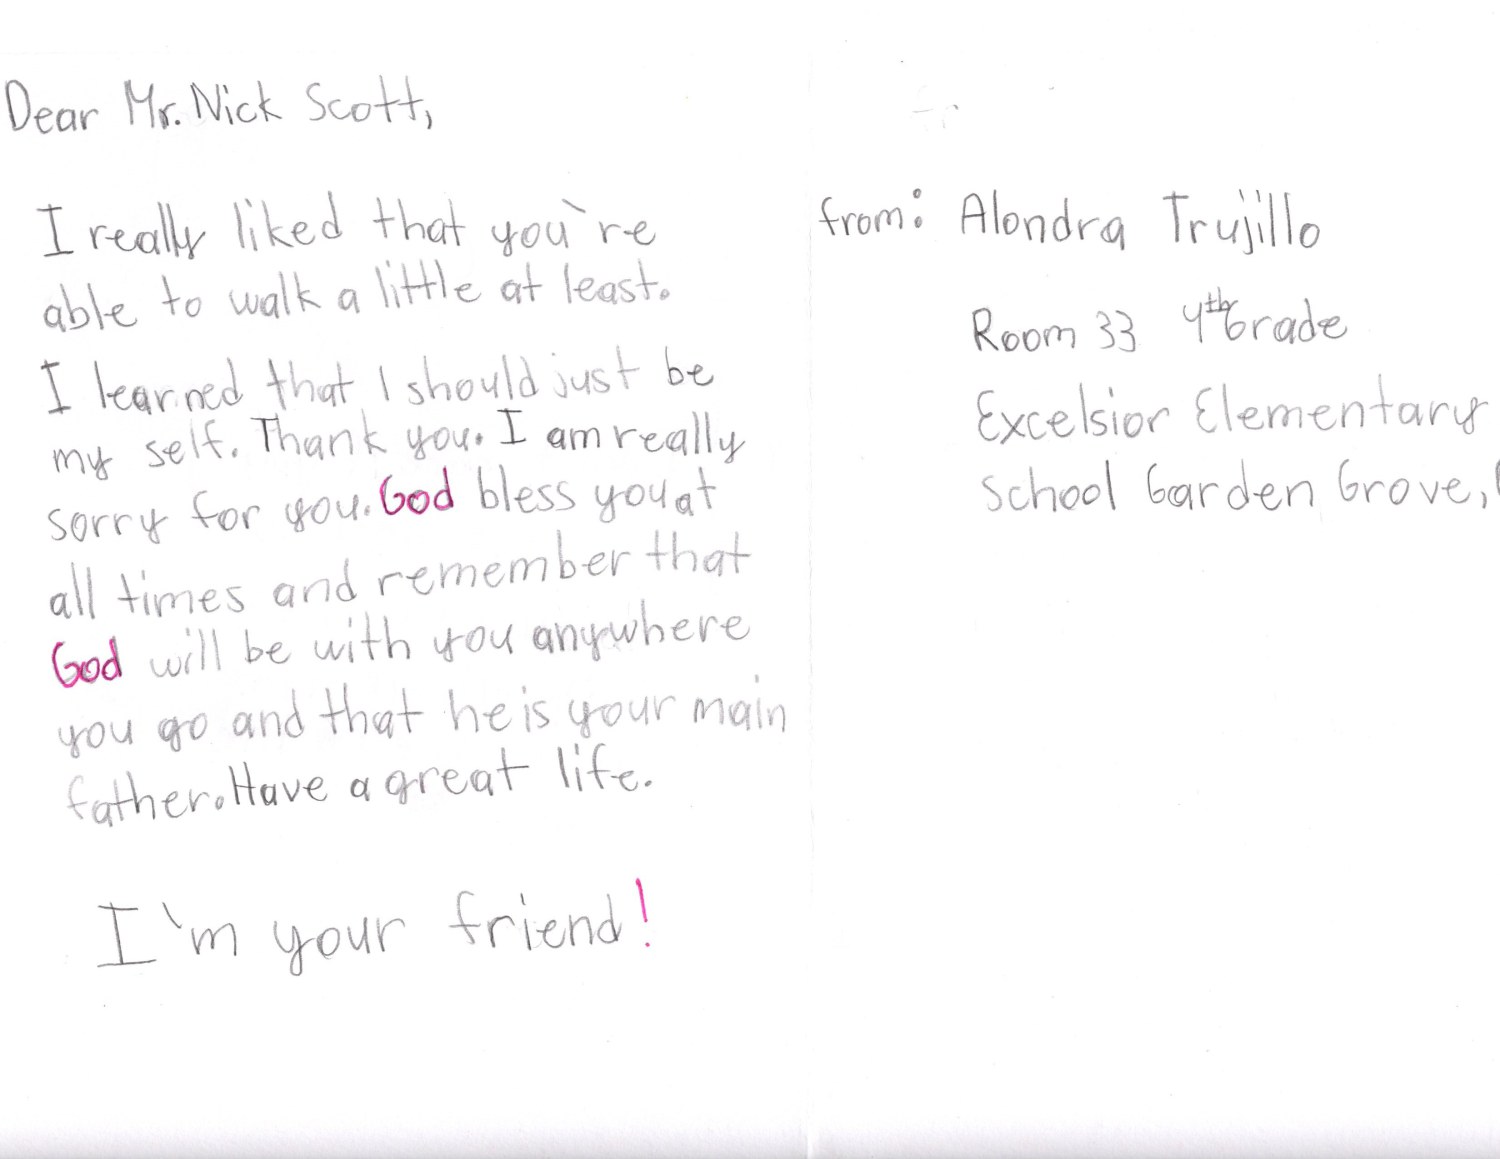 Dear Mr. Nick Scott,
I really liked that you`re
able to walk a little at least.
I learned that I should just be
my self. Thank you. I am really
sorry for you. God bless you at
all times and remember that
God will be with you anywhere
you go and that he is your main
father. Have a great life.
I`m your friend!
from: Alondra Trujillo
Room 33 4th Grade
Excelsior Elementary
School Garden Grove,